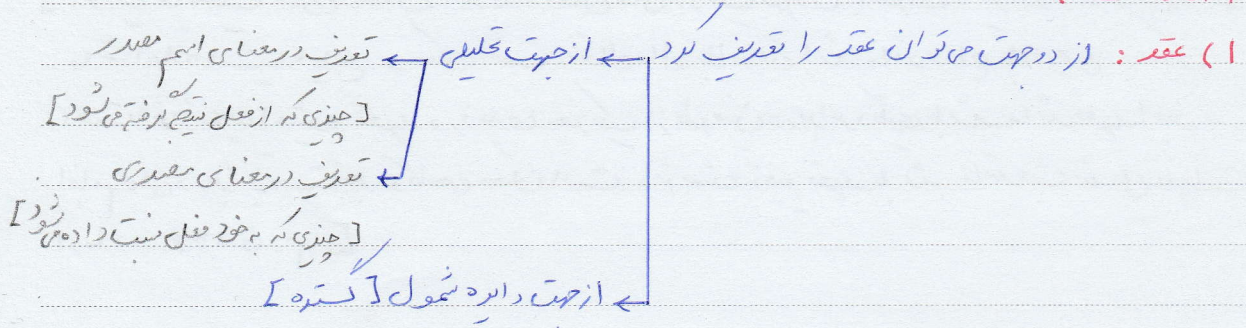 ۱) عقد : از دو جهت می توان عقد را تعریف کرد ← از جهت تحلیلی ← تعریف در معنای اسم مصدر
[چیزی که از فعل نتیجه گرفته می شود]
← تعریف در معنای مصدری
[چیزی که به خود فعل نسبت داده می شود]
← از جهت دایره شمول [گستره]